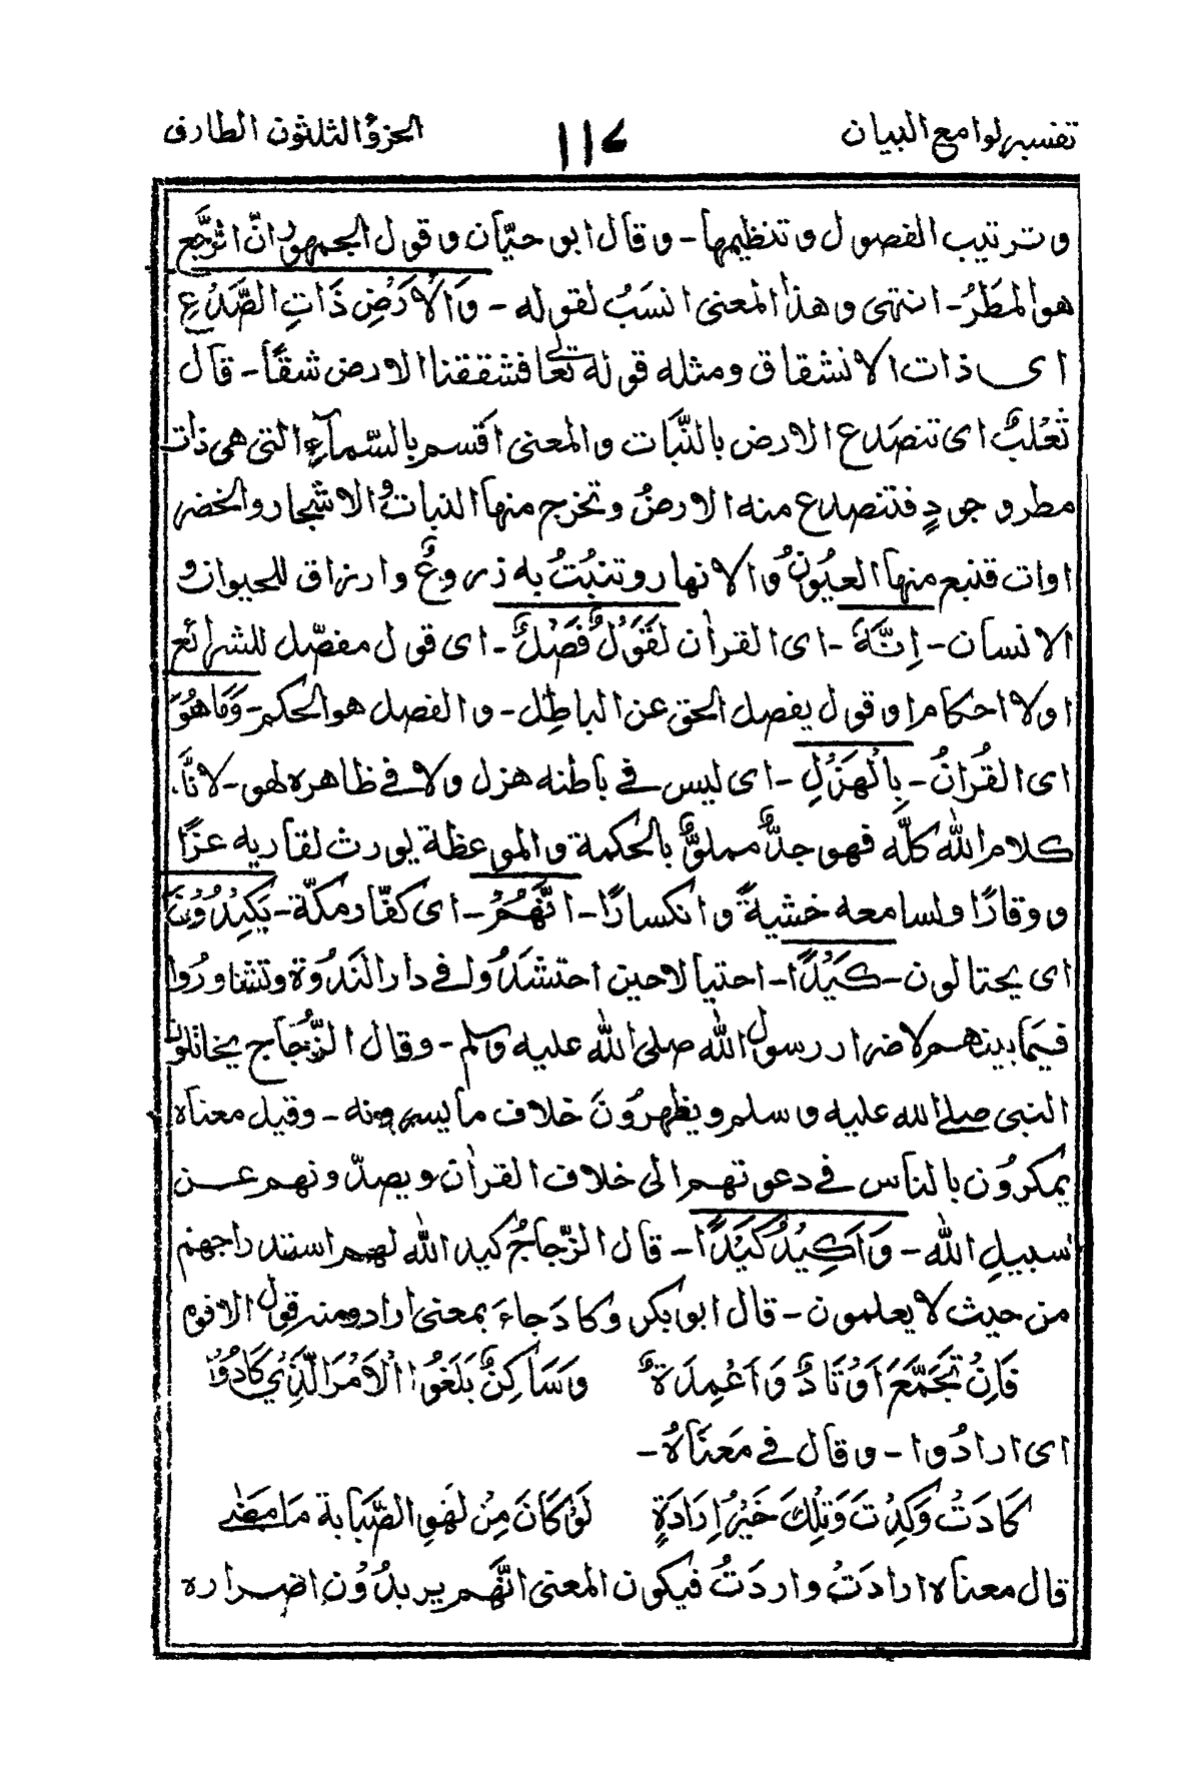 تفسير لوامع البيان
١١٤
الجزؤ الثلثون الطارق
و ترتيب الفصول و تنظيمها - و قال ابو حيّان و قول الجمهور انّ الرّجع
هو المطَرُ - انتهى و هذا المعنى انسَبُ لقوله - وَالْاَرْضِ ذَاتِ الصَّدْعِ
اى ذات الانشقاق و مثله قوله تعالى فشققنا الارض شقًّا - قال
ثَعْلبٌ اى تنصدع الارض بالنَّبات و المعنى اقسم بالسّمآءِ التى هى ذات
مطر و جودٍ فتنصدع منه الارضُ و تخرج منها النباتُ و الاشجار و الخضر
اوات فتنبع منها العيُونُ و الانهار و تنبُتُ به زروعٌ و ارزاق للحيوان و
الانسان - اِنَّهٗ - اى القراٰن لَقَوْلٌ فَصْلٌ - اى قول مفصّل للشرائع
او لاحكام او قول يفصل الحق عن الباطِل - و الفصل هو الحكم - وَمَا هُوَ
اى القُراٰنُ - بِالْهَزْلِ - اى ليس فى باطنه هزل و لا فى ظاهره لهو - لانَّه
كلام اللّٰه كلَّه فهو جدٌّ مملوٌّ بالحكمة و الموعظة يورث لقاريه عزًّا
و وقارًا و لسامعه خشيةً و انكسارًا - انَّهُمْ - اى كفّار مكّة - يَكِيْدُوْنَ
اى يحتالون - كَيْدًا - احتيالا حين احتشدُوا فى دار النَدْوة و تشاورُوا
فيما بينهم لاضرار رسول اللّٰه صلى اللّٰه عليه وسلم - و قال الزُّجّاج يخاتلون
النبى صلى الله عليه و سلم و يظهرُوْنَ خلاف ما يسرونه - و قيل معناه
يمكروُن بالناس فى دعوتهم الى خلاف القراٰن و يصدّونهم عن
سبيلِ اللّٰه - وَ اَكِيْدُ كَيْدًا - قال الزّجاجُ كيد اللّٰه لهم استدراجهم
من حيث لا يعلمون - قال ابو بكر و كادَ جاءَ بمعنى اراد و منه قول الافوه
فَاِنْ تَجَمَّعَ اَوْتَادٌ وَ اَعْمِدَةٌ    وَسَاكِنٌ بَلَغُوا الْاَمْرَ الَّذِيْ كَادُوْا
اى ارادُوا - و قال فى مَعنَاهُ -
كَادَتْ وَكِدْتَ وَتِلْكَ خَيْرُ اِرَادَةٍ    لَوْ كَانَ مِنْ لَهْوِ الصَّبَابة مَا مَضٰى
قال معناه ارادَتْ و اردَتُ فيكون المعنى انَّهم يريدُوْن اضراره